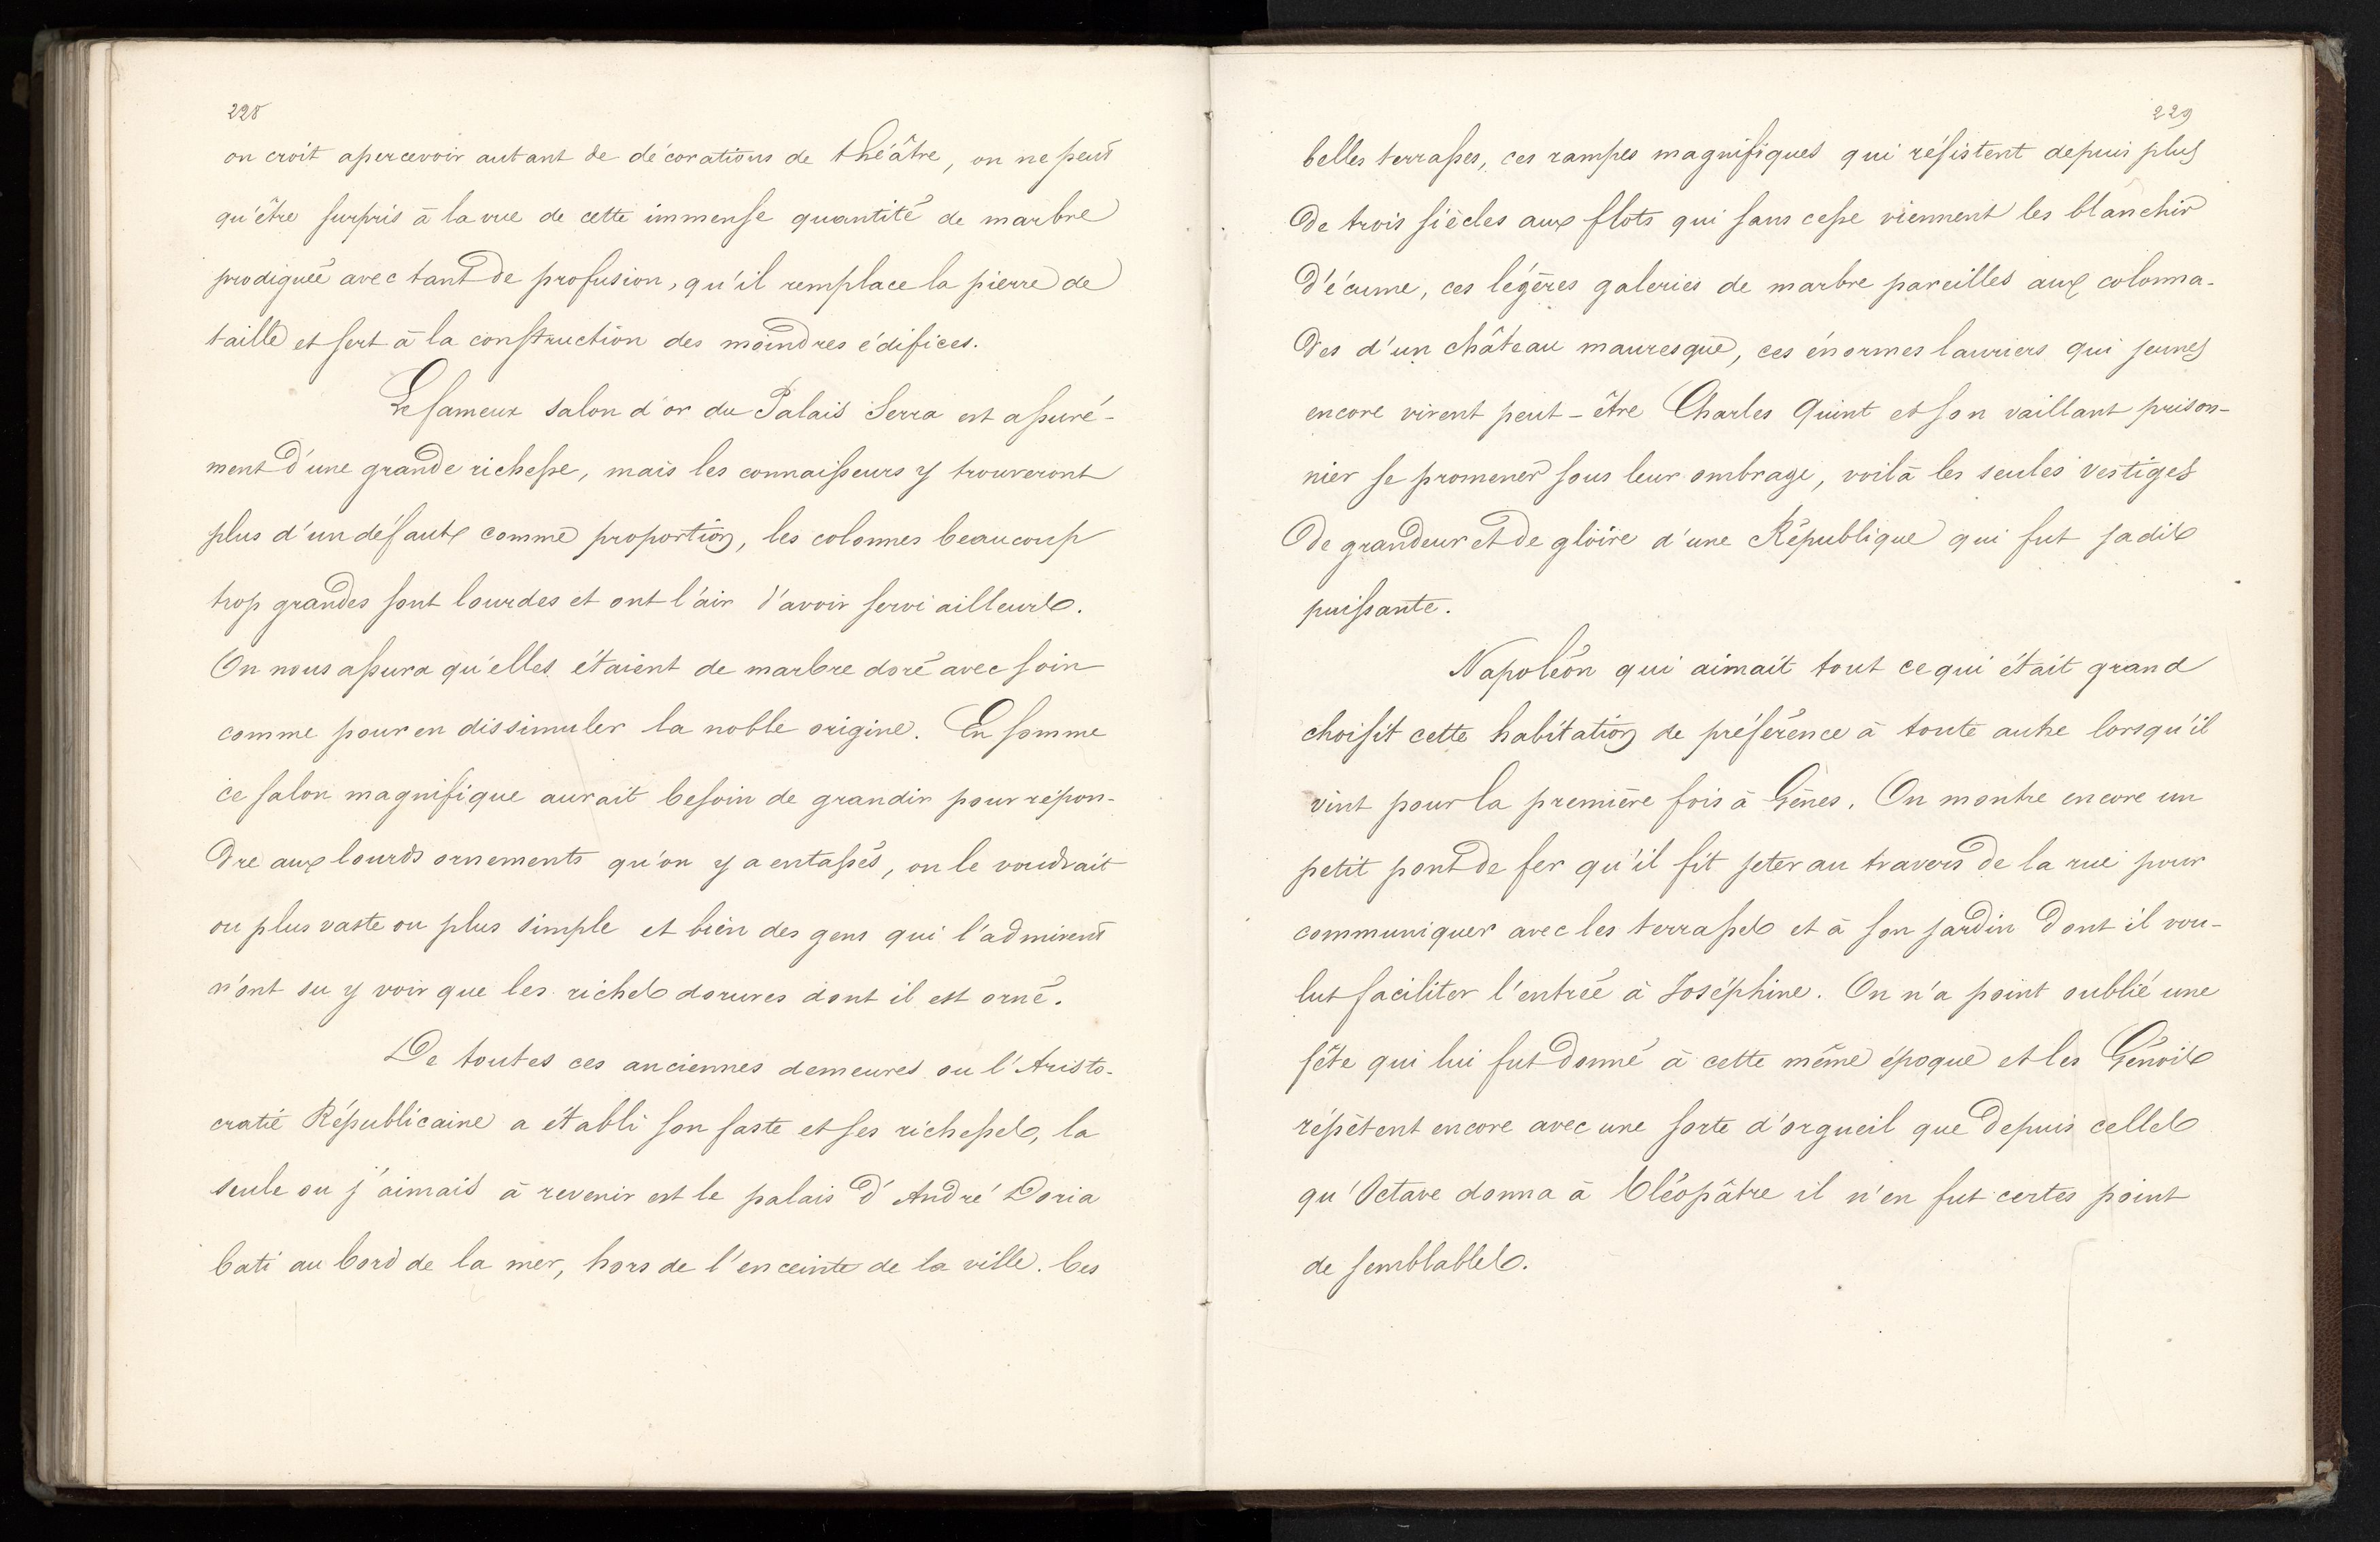 228
on croit apercevoir autant de décorations de théâtre, on ne peut
qu'être surpris à la vue de cette immense quantité de marbre
prodiguée avec tant de profusion, qu'il remplace la pierre de
taille et sert à la construction des moindres édifices.
Le fameux salon d'or du Palais Serra est assuré-
ment d'une grande richesse, mais les connaisseurs y trouveront
plus d'un défaut comme proportion, les colonnes beaucoup
trop grandes sont lourdes et ont l'air d'avoir servi ailleurs.
On nous assura qu'elles étaient de marbre doré avec soin
comme pour en dissimuler la noble origine. En somme
ce salon magnifique aurait besoin de grandir pour répon-
dre aux lourds ornements qu'on y a entassés, on le voudrait
ou plus vaste ou plus simple et bien des gens qui l'admirent
n'ont su y voir que les riches dorures dont il est orné.
De toutes ces anciennes demeures ou l'Aristo-
cratie Républicaine a établi son faste et ses richesses, la
seule ou j'aimais à revenir est le palais d'André Doria
bati au bord de la mer, hors de l'enceinte de la ville. Ces
229
belles terrasses, ces rampes magnifiques qui résistent depuis plus
de trois siècles aux flots qui sans cesse viennent les blanchir
d'écume, ces légères galeries de marbre pareilles aux colonna-
des d'un château mauresque, ces énormes lauriers qui jeunes
encore virent peut-être Charles Quint et son vaillant prison-
nier se promener sous leur ombrage, voilà les seules vestiges
de grandeur et de gloire d'une République qui fut jadis
puissante.
Napoléon qui aimait tout ce qui était grand
choisit cette habitation de préférence à toute autre lorsqu'il
vint pour la première fois à Gênes. On montre encore un
petit pont de fer qu'il fit jeter au travers de la rue pour
communiquer avec les terrasses et à son jardin dont il vou-
lut faciliter l'entrée à Joséphine. On n'a point oublié une
fête qui lui fut donné à cette même époque et les Génois
répètent encore avec une sorte d'orgueil que depuis celles
qu'Octave donna à Cléopâtre il n'en fut certes point
de semblables.